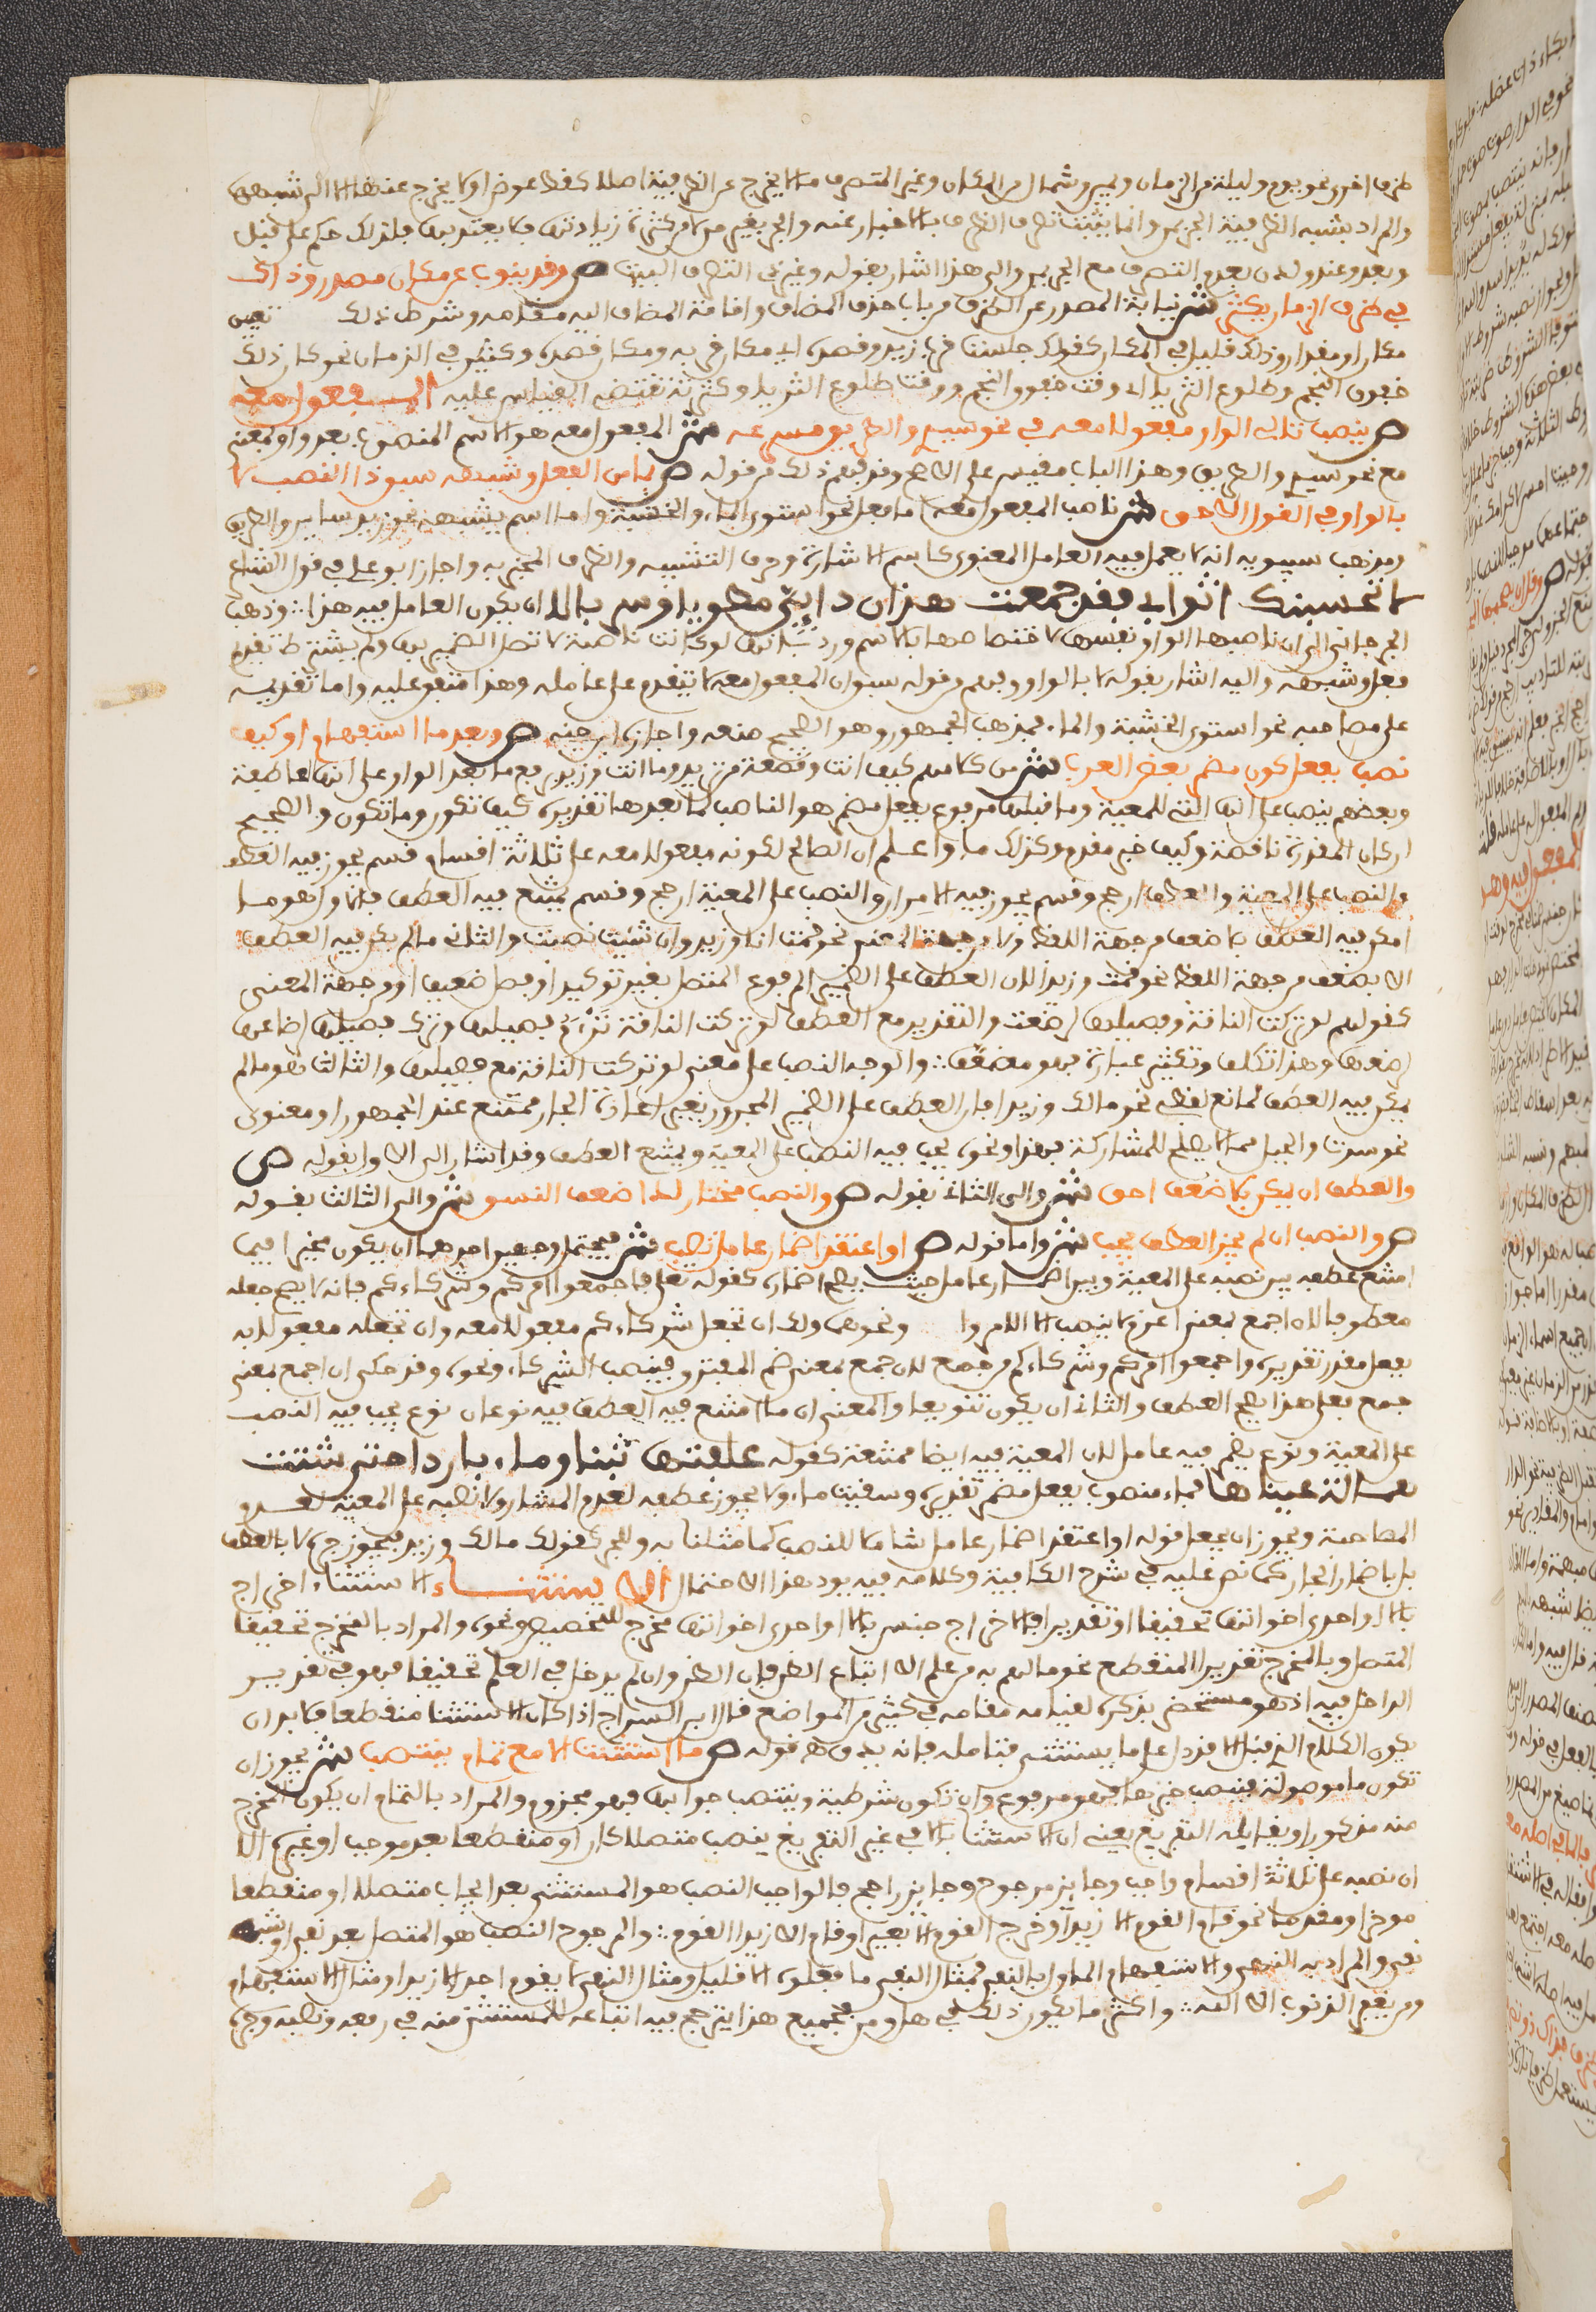 ظرف اخر نحو يوم وليلة من الزمان ويمين وشمال من المكان وغير المتصرف ما لا يخرج عن الظرفية اصلا كقط وعوض او لا يخرج عنها الا الى شبهها
والمراد بشبه الظرفية الجر بمن وانما يثبت تصرف الظرف بالاخبار عنه والجر بغير من لان من كثرت زيادتها فلا يعتد بها فلذلك حكم على قبل
وبعد وعند ولدن بعدم التصرف مع الجر بمن والى هذا اشار بقوله وغير ذى التصرف البيت ص وقد ينوب عن مكان مصدر وذاك
في ظرف الزمان يكثر ش نيابة المصدر عن الظرف من باب حذف المضاف واقامة المضاف اليه مقامه وشرط ذلك تعيين
مكان او مقدار وذلك قليل في المكان كقولك جلست قرب زيد وقصده اى مكان قربه ومكان قصده وكثير في الزمان نحو كان ذلك
خفوق النجم وطلوع الثريا اى وقت خفوق النجم ووقت طلوع الثريا وكثرته تقتضى القياس عليه المفعول معه
ص ينصب تالى الواو مفعولا معه في نحو سيرى والطريق مسرعه ش المفعول معه هو الاسم المنصوب بعد واو بمعنى
مع نحو سيرى والطريق وهذا الباب مقيس على الاصح وقد فهم ذلك من قوله ص بما من الفعل وشبهه سبق ذا النصب لا
بالواو في القول الاحق ش ناصب المفعول معه اما فعل نحو استوى الماء والخشبة واما اسم يشبهه نحو زيد سائر والطريق
ومذهب سيبويه انه لا يعمل فيه العامل المعنوى كاسم الاشارة وحرف التشبيه والظرف المخبر به واجاز ابو على في قول الشاعر
لا تحبسنك اثوابى فقد جمعت هذا ردائى مطويا وسربالا ان يكون العامل فيه هذا وذهب
الجرجانى الى ان ناصبها الواو نفسها لاختصاصها بالاسم ورد بانها لو كانت ناصبة لاتصل الضمير بها ولم يشترط تقدم
فعل وشبهه واليه اشار بقوله لا بالواو وفهم من قوله سبق ان المفعول معه لا يتقدم على عامله وهذا متفق عليه واما تقديمه
على مصاحبه نحو استوى الخشبة والماء فمذهب الجمهور وهو الصحيح منعه واجازه ابن جنى ص وبعد ما استفهام او كيف
نصب بفعل كون مضمر بعض العرب ش من كلامهم كيف انت وقصعة من ثريد وما انت وزيد برفع ما بعد الواو على انها عاطفة
وبعضهم ينصب على انها التى للمعية وما قبلها مرفوع بفعل مضمر هو الناصب لما بعدها تقديره كيف تكون وما تكون والصحيح
ان كان المقدرة ناقصة وكيف خبر مقدم وكذلك ما واعلم ان الصالح لكونه مفعولا معه على ثلاثة اقسام قسم يجوز فيه العطف
والنصب على المعية والعطف ارجح وقسم يجوز فيه الامران والنصب على المعية ارجح وقسم يمتنع فيه العطف فالاول هو ما
امكن فيه العطف بلا ضعف من جهة اللفظ ولا من جهة المعنى نحو قمت انا وزيد وان شئت نصبت والثانى ما لم يمكن فيه العطف
الا بضعف من جهة اللفظ نحو قمت وزيدا لان العطف على الضمير المرفوع المتصل بغير توكيد او فصل ضعيف او من جهة المعنى
كقولهم لو تركت الناقة وفصيلها لرضعها والتقدير مع العطف لو تركت الناقة ترأم فصيلها وترك فصيلها لرضاعها
لرضعها وهذا تكلف وتكثير عبارة فهو مضعف والوجه النصب على معنى لو تركت الناقة مع فصيلها والثالث هو ما لم
يمكن فيه العطف لمانع لفظى نحو مالك وزيدا فان العطف على الضمير المجرور بغير اعادة الجار ممتنع عند الجمهور او معنوى
نحو سرت والجبل مما لا يصلح للمشاركة فهذا ونحوه يجب فيه النصب على المعية ويمتنع العطف وقد اشار الى الاول بقوله ص
والعطف ان يمكن بلا ضعف احق ش والى الثانى بقوله ص والنصب مختار لدا ضعف النسق ش والى الثالث بقوله
ص والنصب ان لم يجز العطف يجب ش واما قوله ص او اعتقد اضمار عامل تصب ش فيحتمل وجهين احدهما ان يكون مخيرا فيما
امتنع عطفه بين نصبه على المعية وبين اضمار عامل حيث يصح اضماره كقوله تعالى فاجمعوا امركم وشركاءكم فانه لا يصح جعله
معطوفا لان اجمع بمعنى اعزم لا ينصب الا الامر ونحوه ولك ان تجعل شركاءكم مفعولا معه وان تجعله مفعولا به
بفعل مقدر تقديره واجمعوا امركم وشركاءكم من جمع لان جمع بمعنى ضم المفترق فينصب الشركاء ونحوه وقد حكى ان اجمع بمعنى
جمع فعلى هذا يصح العطف والثانى ان يكون تنويعا والمعنى ان ما امتنع فيه العطف فيه نوعان نوع يجب فيه النصب
على المعية ونوع يضمر فيه عامل لان المعية فيه ايضا ممتنعة كقوله علفتها تبنا وماء باردا حتى شتت
همالة عيناها فماء منصوب بفعل مضمر تقديره وسقيت ماء ولا يجوز عطفه لعدم المشاركة ولا نصبه على المعية لعدم
المصاحبة ويجوز ان يجعل قوله او اعتقد اضمار عامل شاملا للنصب كما مثلنا به وللجر كقولك مالك وزيد فيجوز جره لا بالعطف
بل باضمار الجار كما نص عليه في شرح الكافية وكلامه فيه يود هذا الاحتمال الاستثناء الاستثناء اخراج
بالا او احدى اخواتها تحقيقا او تقديرا فالاخراج جنس بالا او احدى اخواتها مخرج للتخصيص ونحوه والمراد بالمخرج تحقيقا
المتصل وبالمخرج تقديرا المنقطع نحو ما لهم به من علم الا اتباع الظن فان الظن وان لم يدخل في العلم تحقيقا فهو في تقدير
الداخل فيه اذ هو مستحضر بذكره لقيامه مقامه في كثير من المواضع قال ابن السراج اذا كان الاستثناء منقطعا فلا بد ان
يكون الكلام الذى قبل الا قد دل على ما يستثنى فتامله فانه يدق ص قوله ما استثنت الا مع تمام ينتصب ش يجوز ان
تكون ما موصولة فينتصب خبرها فهو مرفوع وان تكون شرطية وينتصب جوابها فهو مجزوم والمراد بالتمام ان يكون المخرج
منه مذكورا ويقابله التفريغ يعنى ان الاستثناء بالا في غير التفريغ ينصب متصلا كان او منقطعا بعد موجب او غيره الا
ان نصبه على ثلاثة اقسام واجب وجايز مرجوح وجايز راجح فالواجب النصب هو المستثنى بعد ايجاب متصلا او منقطعا
موخرا او مقدما نحو قام القوم الا زيدا وخرج القوم الا بعيرا وقام الا زيدا القوم والمرجوح النصب هو المتصل بعد نفى او شبه
نفى والمراد به النهى والاستفهام المأول بالنفى فمثال النفى ما فعلوه الا قليل ومثال النهى لا يقم احد الا زيدا ومثال الاستفهام
ومن يغفر الذنوب الا الله واكثر ما يكون ذلك في هل ومن فجميع هذا يترجح فيه اتباعه للمستثنى منه في رفعه ونصبه وجره